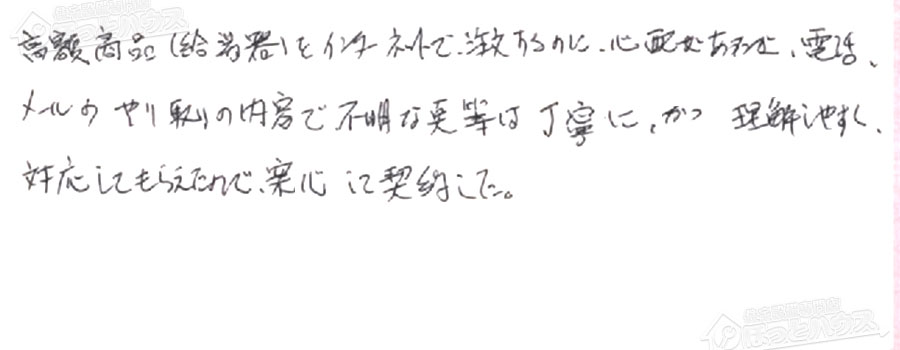 高額商品(給湯器)をインターネットで、注文するのに、心配があったが、電話、
メールの やり取りの内容で不明な点等は丁寧に、かつ 理解しやすく、
対応してもらえたので、安心 して契約した。